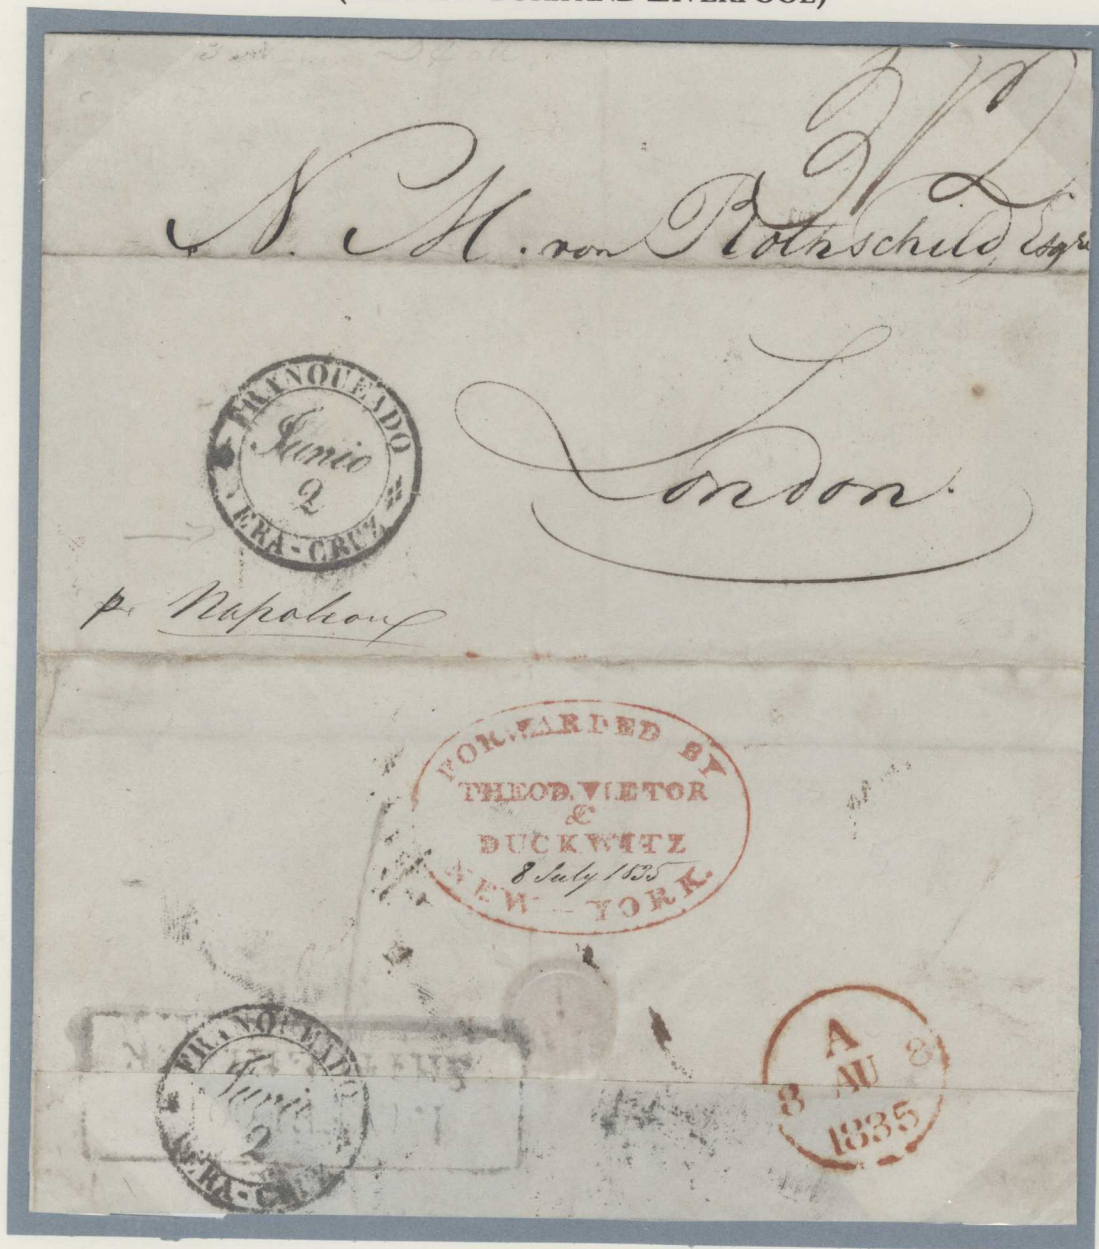 AND LIVERPOOL)
3/2
N. M. von Rothschild, Esqre
London.
FRANQUEADO
Junio
2
VERA-CRUZ
pr Napoleon
FORWARDED BY
THEOD. VIETOR
&
DUCKWITZ
8 July 1835
NEW-YORK.
FRANQUEADO
Junio
2
VERA-CRUZ
A
8 AU 8
1835